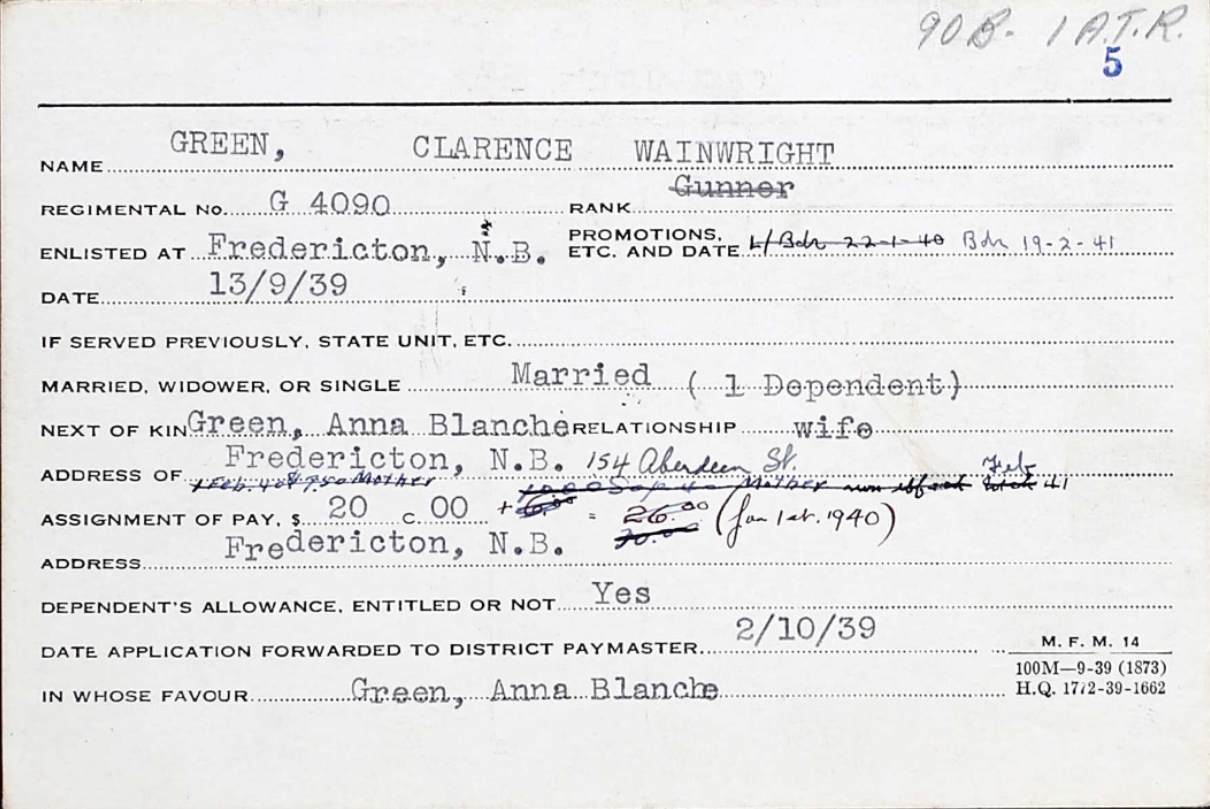 90 B. 1 A.T.R.
5
NAME GREEN, CLARENCE WAINWRIGHT
REGIMENTAL No. G 4090 RANK Gunner
ENLISTED AT Fredericton, N.B. PROMOTIONS, ETC. AND DATE L/Bdr 22-1-40 Bdr 19-2-41
DATE 13/9/39
IF SERVED PREVIOUSLY, STATE UNIT, ETC.
MARRIED, WIDOWER, OR SINGLE Married ( 1 Dependent)
NEXT OF KIN Green, Anna Blanche RELATIONSHIP wife
ADDRESS OF Fredericton, N.B. 154 Aberdeen St.
Feb. 40 Mother Mother Feb 41
ASSIGNMENT OF PAY, $ 20 c. 00 + 6.00 = 26.00 (Jan 1st. 1940)
ADDRESS Fredericton, N.B.
DEPENDENT'S ALLOWANCE, ENTITLED OR NOT Yes
DATE APPLICATION FORWARDED TO DISTRICT PAYMASTER 2/10/39
IN WHOSE FAVOUR Green, Anna Blanche
M. F. M. 14
100M—9-39 (1873)
H.Q. 1772-39-1662